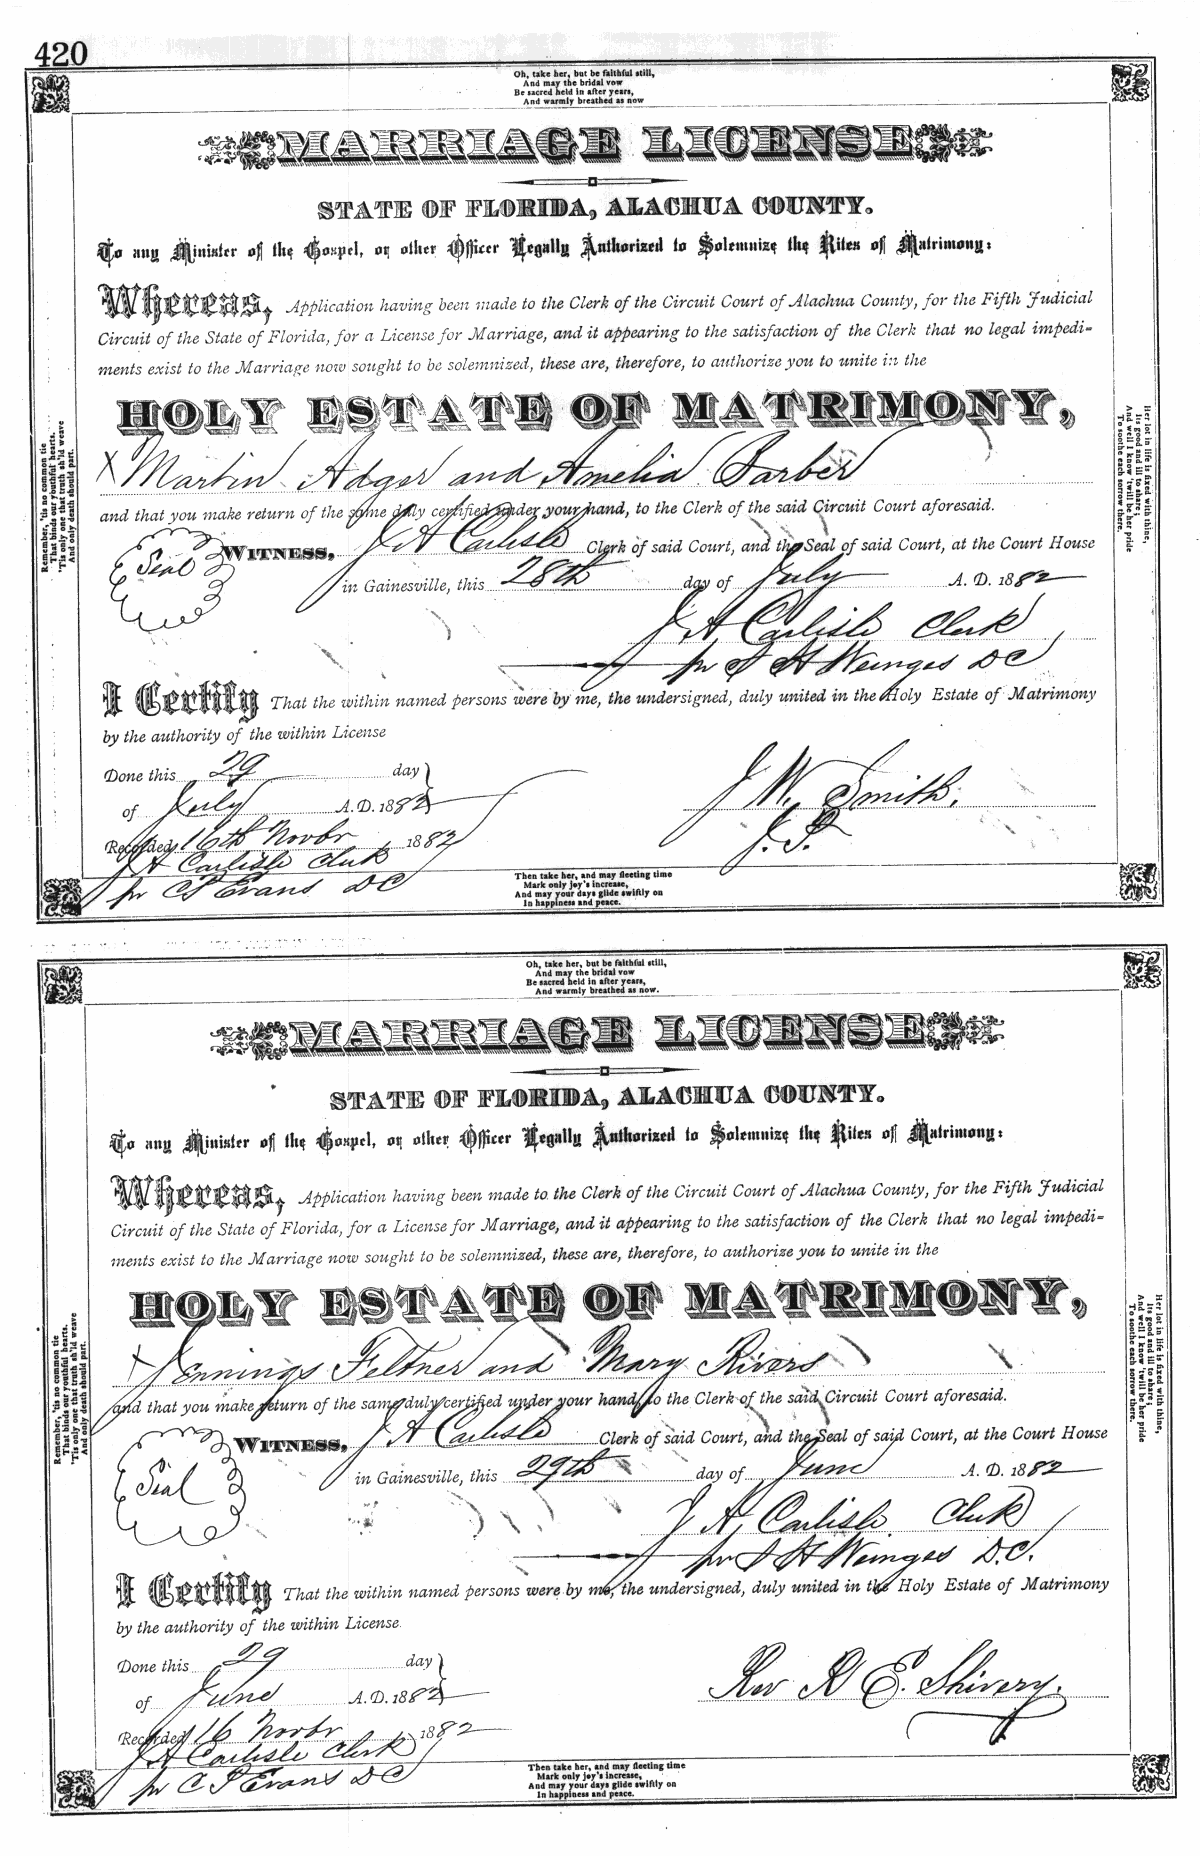 420
Oh, take her, but be faithful still,
And may the bridal vow
Be sacred held in after years,
And warmly breathed as now
MARRIAGE LICENSE
STATE OF FLORIDA, ALACHUA COUNTY.
To any Minister of the Gospel, or other Officer Legally Authorized to Solemnize the Rites of Matrimony:
Whereas, Application having been made to the Clerk of the Circuit Court of Alachua County, for the Fifth Judicial
Circuit of the State of Florida, for a License for Marriage, and it appearing to the satisfaction of the Clerk that no legal impedi-
ments exist to the Marriage now sought to be solemnized, these are, therefore, to authorize you to unite in the
HOLY ESTATE OF MATRIMONY,
X Martin Adger and Amelia Barber
and that you make return of the same duly certified under your hand, to the Clerk of the said Circuit Court aforesaid.
Seal
WITNESS, J A Carlisle Clerk of said Court, and the Seal of said Court, at the Court House
in Gainesville, this 28th day of July A. D. 1882
J A Carlisle Clerk
pr S H Wienges DC
I Certify That the within named persons were by me, the undersigned, duly united in the Holy Estate of Matrimony
by the authority of the within License
Done this 29 day
of July A. D. 1882
J. W. Smith.
J. P.
Recorded 16th Novbr 1882
J A Carlisle Clerk
pr C P Evans DC
Remember, 'tis no common tie
That binds our youthful hearts.
'Tis only one that truth sh'ld weave
And only death should part.
Her lot in life is fixed with thine,
Its good and ill to share;
And well I know 'twill be her pride
To soothe each sorrow there.
Then take her, and may fleeting time
Mark only joy's increase,
And may your days glide swiftly on
In happiness and peace.
Oh, take her, but be faithful still,
And may the bridal vow
Be sacred held in after years,
And warmly breathed as now.
MARRIAGE LICENSE
STATE OF FLORIDA, ALACHUA COUNTY.
To any Minister of the Gospel, or other Officer Legally Authorized to Solemnize the Rites of Matrimony:
Whereas, Application having been made to the Clerk of the Circuit Court of Alachua County, for the Fifth Judicial
Circuit of the State of Florida, for a License for Marriage, and it appearing to the satisfaction of the Clerk that no legal impedi-
ments exist to the Marriage now sought to be solemnized, these are, therefore, to authorize you to unite in the
HOLY ESTATE OF MATRIMONY,
X Jennings Feltner and Mary Rivers
and that you make return of the same duly certified under your hand, to the Clerk of the said Circuit Court aforesaid.
Seal
WITNESS, J A Carlisle Clerk of said Court, and the Seal of said Court, at the Court House
in Gainesville, this 29th day of June A. D. 1882
J A Carlisle Clerk
pr S H Wienges D.C.
I Certify That the within named persons were by me, the undersigned, duly united in the Holy Estate of Matrimony
by the authority of the within License.
Done this 29 day
of June A. D. 1882
Rev R E. Shivery.
Recorded 16 Novbr 1882
J A Carlisle Clerk
pr C P Evans DC
Remember, 'tis no common tie
That binds our youthful hearts.
'Tis only one that truth sh'ld weave
And only death should part.
Her lot in life is fixed with thine,
Its good and ill to share;
And well I know 'twill be her pride
To soothe each sorrow there.
Then take her, and may fleeting time
Mark only joy's increase,
And may your days glide swiftly on
In happiness and peace.